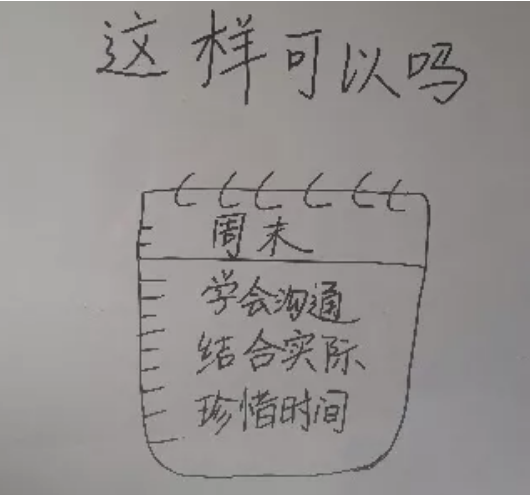 这样可以吗
周末
学会沟通
结合实际
珍惜时间